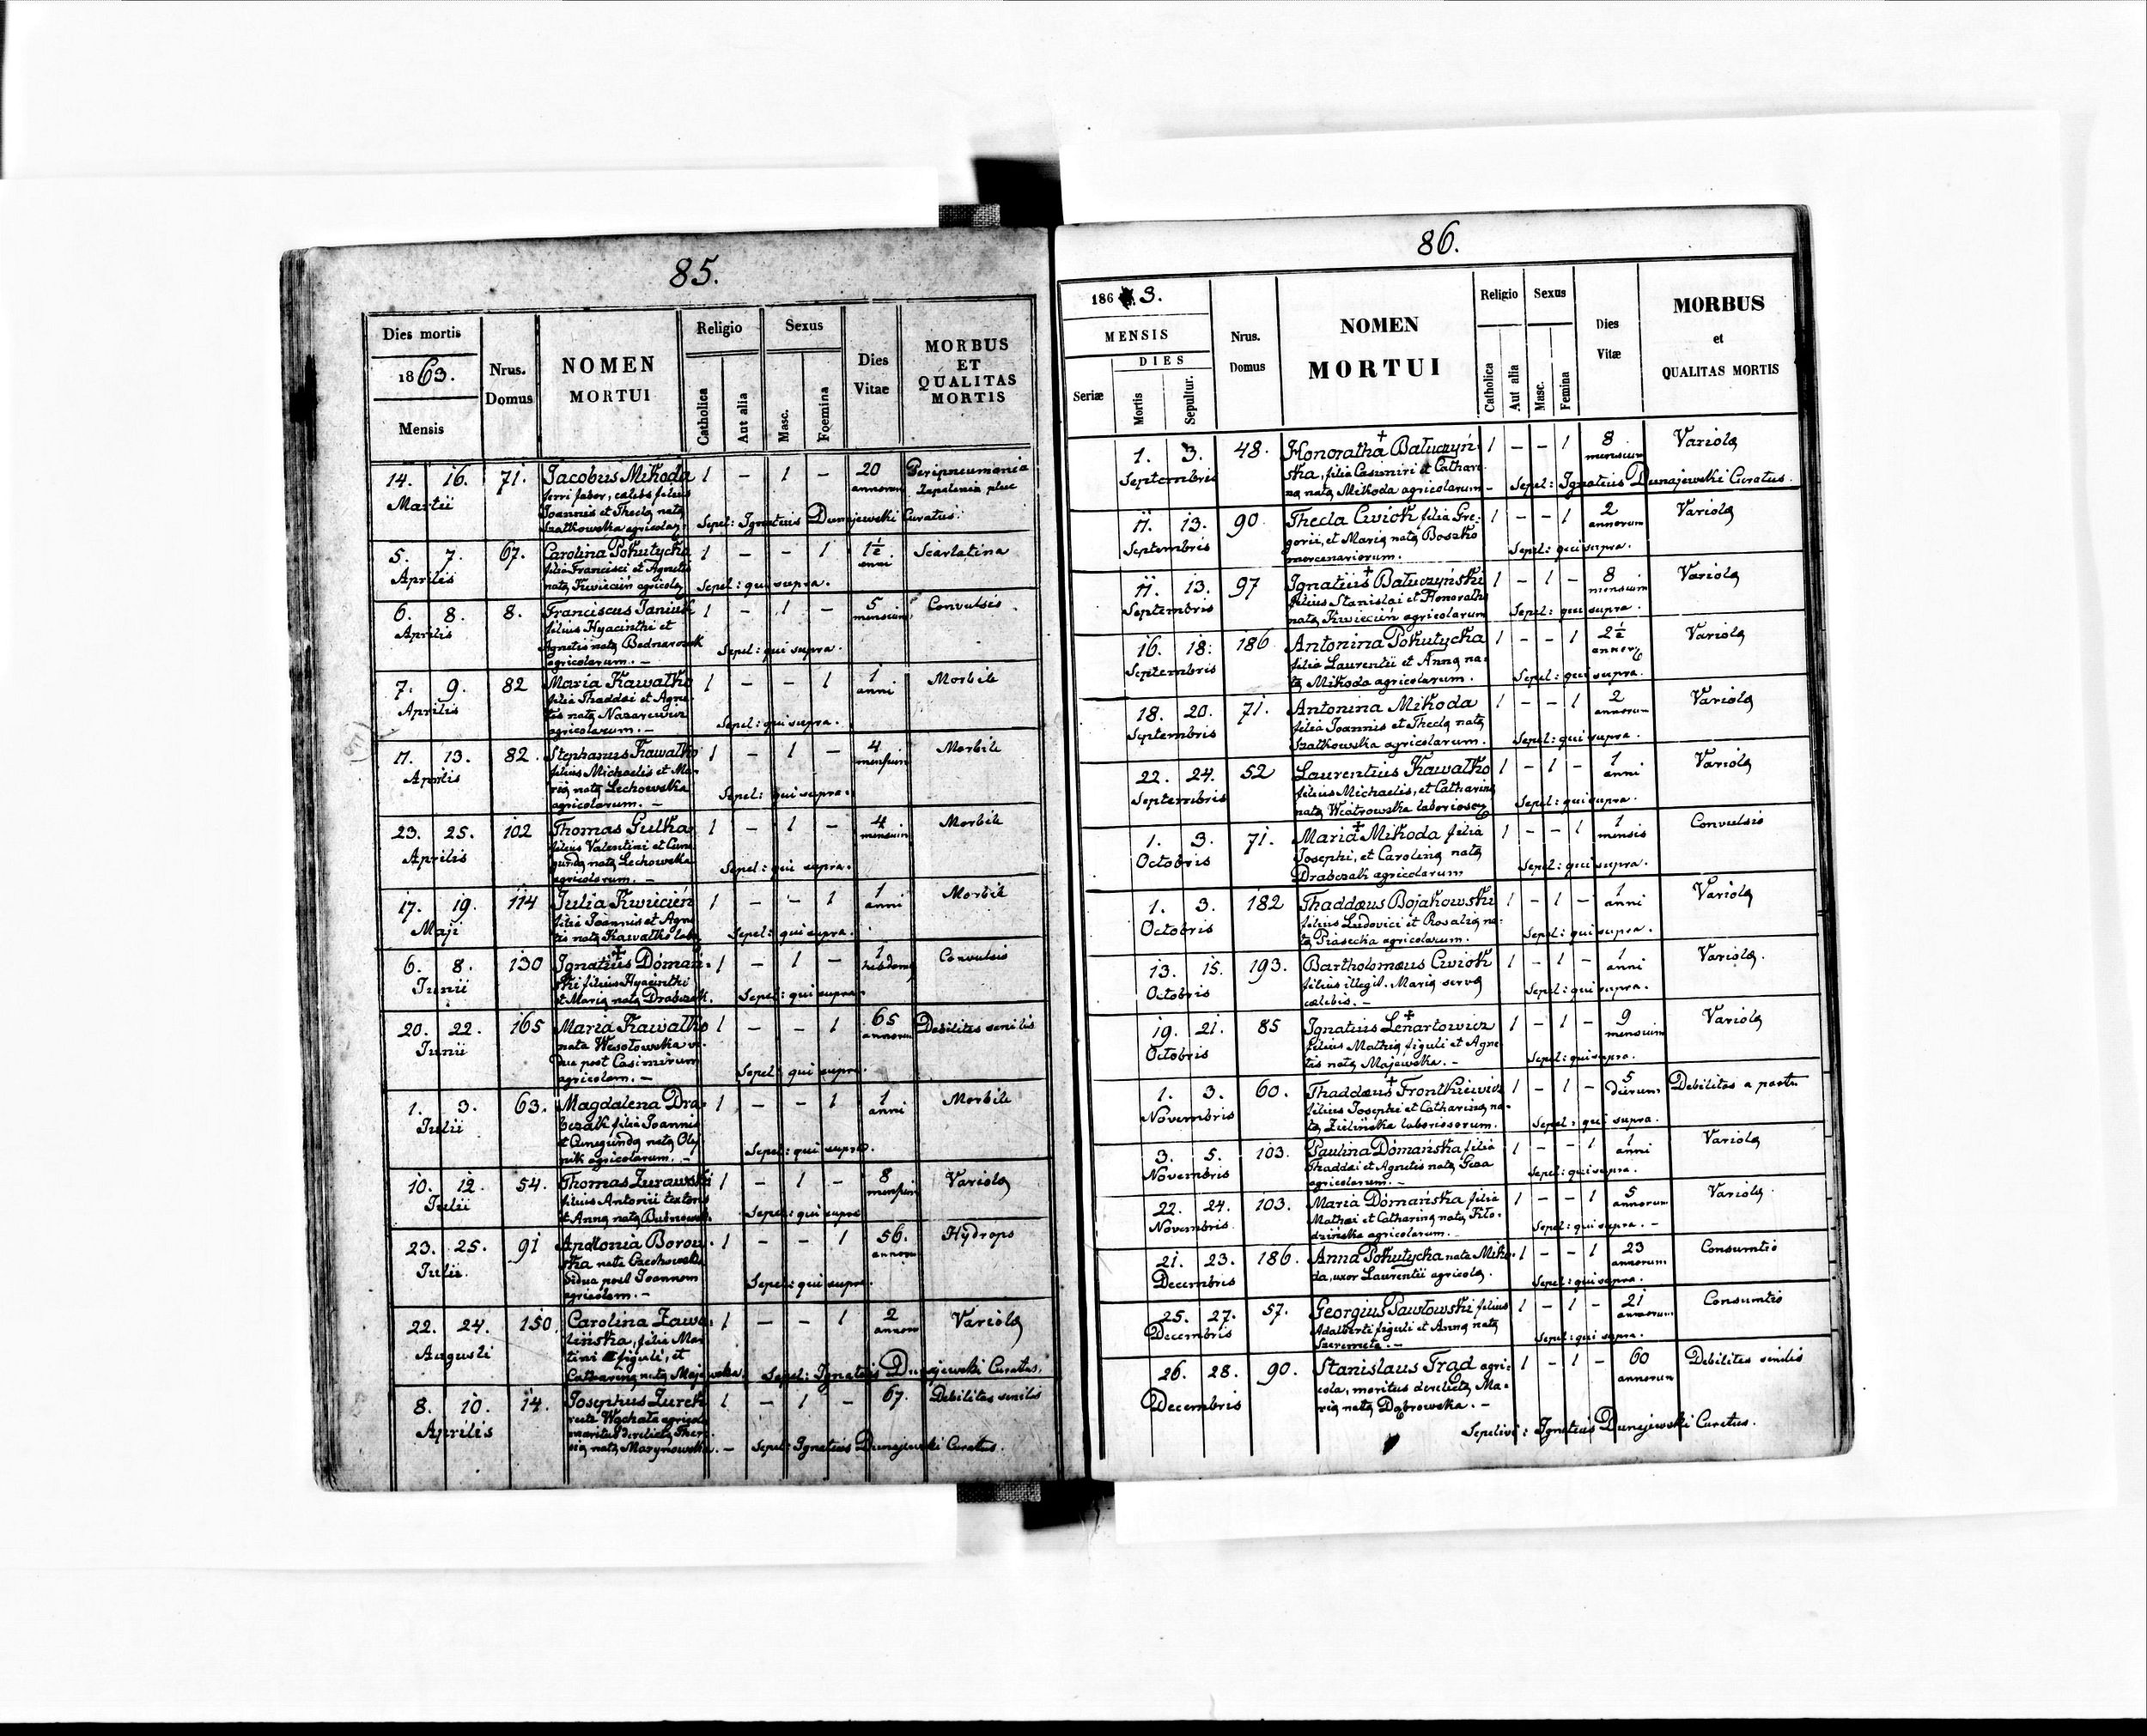 85.
Dies mortis
1863.
Mensis
Nrus.
Domus
NOMEN
MORTUI
Religio
Catholica
Aut alia
Sexus
Masc.
Foemina
Dies
Vitae
MORBUS
ET
QUALITAS
MORTIS
14. 16. 71. Jacobus Mikoda 1 – 1 – 20 Peripneumonia
Martii ferri faber, calebs filius annorum Zapalenie płuc
Joannis et Thecla nata
Szatkowska agricolar. Sepel: Ignatius Dunajewski Curatus.
5. 7. 67. Carolina Pokutycka 1 – – 1 1½ Scarlatina
Aprilis filia Francisci et Agnetis anni
nata Kwiecień agricola Sepel: qui supra.
6. 8. 8. Franciscus Janiuk 1 – 1 – 5 Convulsio
Aprilis filius Hyacinthi et mensium
Agnetis nata Bednarczuk Sepel: qui supra.
agricolarum. –
7. 9. 82 Maria Kawalko 1 – – 1 1 Morbili
Aprilis filia Thaddai et Agne anni
tis nata Nazarewicz Sepel: qui supra.
agricolarum. –
11. 13. 82. Stephanus Kawalko 1 – 1 – 4 Morbili
Aprilis filius Michaelis et Ma- mensium
ria nata Lechowska Sepel: qui supra.
agricolarum. –
23. 25. 102 Thomas Gulka 1 – 1 – 4 Morbili
Aprilis filius Valentini et Cune mensium
gunda nata Lechowska Sepel: qui supra.
agricolarum. –
17. 19. 114 Julia Kwiecień 1 – – 1 1 Morbili
Maji filia Joannis et Agne anni
tis nata Kawalko labo Sepel: qui supra.
6. 8. 130 Ignatius Domań- 1 – 1 – 1 Convulsio
Junii ski filius Hyacinthi hebdom
et Maria nata Drabczak. Sepel: qui supra.
20. 22. 165 Maria Kawalko 1 – – 1 65 Debilitas senilis
Junii nata Wesołowska vi- annorum
dua post Casimirum Sepel: qui supra.
agricolam. –
1. 3. 63. Magdalena Dra- 1 – – 1 1 Morbili
Julii bczak filia Joannis anni
et Cunegunda nata Oly Sepel: qui supra.
nik agricolarum. –
10. 12. 54. Thomas Żurawski 1 – 1 – 8 Variola
Julii filius Antonii textoris mensium
et Anna nata Sepel: qui supra
23. 25. 91 Apollonia Borow- 1 – – 1 56. Hydrops
Julii ska nata Czechowska annorum
vidua post Joannem Sepel: qui supra.
agricolam. –
22. 24. 150. Carolina Zawa- 1 – – 1 2 Variola
Augusti lińska, filia Mar annorum
tini figuli, et
Catharina nata Majewska. Sepel: Ignatius Dunajewski Curatus.
8. 10. 14. Josephus Żurek 1 – 1 – 67. Debilitas senilis
Aprilis recte Wachała agricola
maritus derelicta There-
sia nata Mazynowska. – Sepel: Ignatius Dunajewski Curatus.
86.
1863.
MENSIS
DIES
Seriæ
Mortis
Sepultur.
Nrus.
Domus
NOMEN
MORTUI
Religio
Catholica
Aut alia
Sexus
Masc.
Femina
Dies
Vitæ
MORBUS
et
QUALITAS MORTIS
1. 3. 48. Honoratha Bałuczyń- 1 – – 1 8 Variola
Septembris ska, filia Casimiri et Cathari- mensium
na nata Mikoda agricolarum – Sepel: Ignatius Dunajewski Curatus.
11. 13. 90. Thecla Cwiok filia Gre- 1 – – 1 2 Variola
Septembris gorii, et Maria nata Boszko annorum
mercenariorum. Sepel: qui supra.
11. 13. 97 Ignatius Bałuczyński 1 – 1 – 8 Variola
Septembris filius Stanislai et Honorath mensium
nata Kwiecień agricolarum Sepel: qui supra.
16. 18. 186 Antonina Pokutycka 1 – – 1 2½ Variola
Septembris filia Laurentii et Anna na- annor
ta Mikoda agricolarum. Sepel: qui supra.
18. 20. 71. Antonina Mikoda 1 – – 1 2 Variola
Septembris filia Joannis et Thecla nata annorum
Szatkowska agricolarum. Sepel: qui supra.
22. 24. 52 Laurentius Kawalko 1 – 1 – 1 Variola
Septembris filius Michaelis, et Catharina anni
nata Wiatrowska Sepel: qui supra.
1. 3. 71. Maria Mikoda filia 1 – – 1 1 Convulsio
Octobris Josephi, et Carolina nata mensis
Drabczak agricolarum Sepel: qui supra.
1. 3. 182 Thaddæus Bojakowski 1 – 1 – 1 Variola
Octobris filius Ludovici et Rosalia na- anni
ta Piasecka agricolarum. Sepel: qui supra.
13. 15. 193. Bartholomæus Cwiok 1 – 1 – 1 Variola.
Octobris filius illegit. Maria serva anni
calebis. – Sepel: qui supra.
19. 21. 85 Ignatius Lenartowicz 1 – 1 – 9 Variola
Octobris filius Mathia figuli et Agne mensium
tis nata Majewska. – Sepel: qui supra.
1. 3. 60. Thaddæus Frontkiewicz 1 – 1 – 5 Debilitas a partu
Novembris filius Josephi et Catharina na- dierum
ta Zielińska laboriosorum. Sepel: qui supra.
3. 5. 103. Paulina Domańska filia 1 – – 1 1 Variola
Novembris Thaddæi et Agnetis nata Giza anni
agricolarum. – Sepel: qui supra.
22. 24. 103. Maria Domańska filia 1 – – 1 5 Variola.
Novembris Mathæi et Catharina nata Kiło- annorum
dzińska agricolarum. Sepel: qui supra. –
21. 23. 186. Anna Pokutycka nata Miko- 1 – – 1 23 Consumtio
Decembris da, uxor Laurentii agricola. annorum
Sepel: qui supra.
25. 27. 57. Georgius Pawłowski filius 1 – 1 – 21 Consumtio
Decembris Adalberti figuli et Anna nata annorum
Szeremeta. – Sepel: qui supra.
26. 28. 90. Stanislaus Trad agri- 1 – 1 – 60 Debilitas senilis
Decembris cola, maritus derelicta Ma- annorum
ria nata Dąbrowska. –
Sepelivi: Ignatius Dunajewski Curatus.